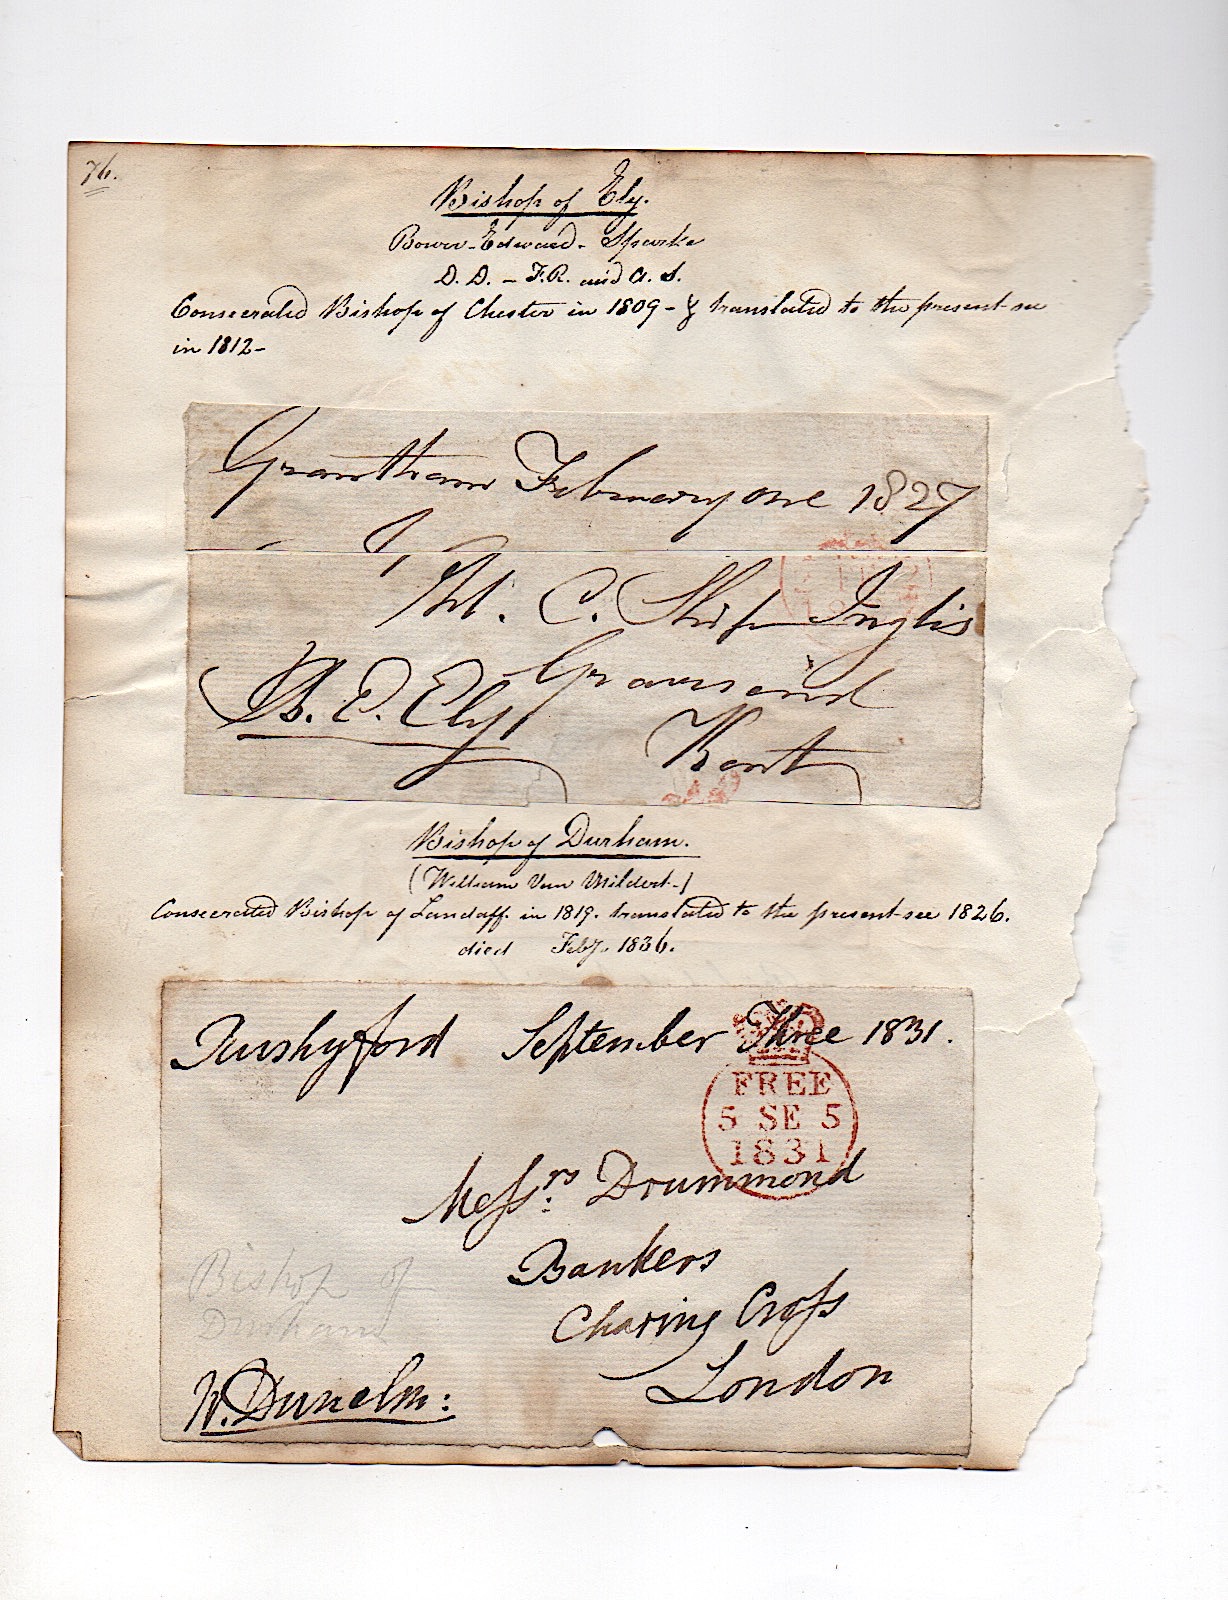 76.
Bishop of Ely.
Bower-Edward-Sparke
D. D. - F.R. and A. S.
Consecrated Bishop of Chester in 1809 - & translated to the present see
in 1812 -
Grantham February one 1827
C. Ship Inglis
Gravesend
B. E. Ely
Kent
Bishop of Durham.
(William Van Mildert-)
Consecrated Bishop of Landaff in 1819. translated to the present see 1826.
died Feby. 1836.
Rushyford September Three 1831.
FREE
5 SE 5
1831
Messrs Drummond
Bankers
Charing Cross
London
Bishop of
Durham
W. Dunelm: